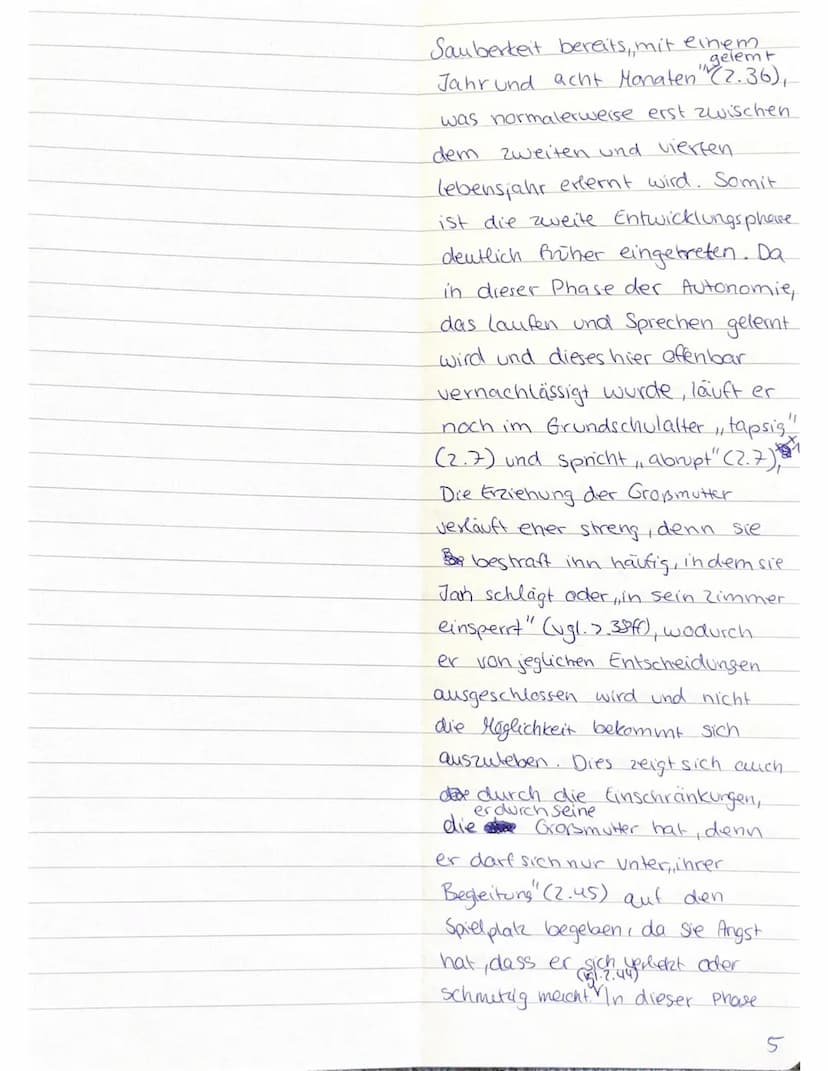 Sauberkeit bereits „mit einem
gelernt
Jahr und acht Monaten" (Z.36),
was normalerweise erst zwischen
dem zweiten und vierten
Lebensjahr erlernt wird. Somit
ist die zweite Entwicklungsphase
deutlich früher eingetreten. Da
in dieser Phase der Autonomie,
das laufen und Sprechen gelernt
wird und dieses hier offenbar
vernachlässigt wurde, läuft er
noch im Grundschulalter „tapsig"
(Z.7) und spricht „abrupt" (Z.7),
Die Erziehung der Großmutter
verläuft eher streng, denn sie
bestraft ihn häufig, indem sie
Jan schlägt oder „in sein Zimmer
einsperrt" (vgl. Z.38ff), wodurch
er von jeglichen Entscheidungen
ausgeschlossen wird und nicht
die Möglichkeit bekommt sich
auszuleben. Dies zeigt sich auch
durch die Einschränkungen,
er durch seine
die Großmutter hat, denn
er darf sich nur unter „ihrer
Begleitung" (Z.45) auf den
Spielplatz begeben, da sie Angst
hat, dass er sich verletzt oder
(vgl. Z.44)
schmutzig macht. In dieser Phase
5